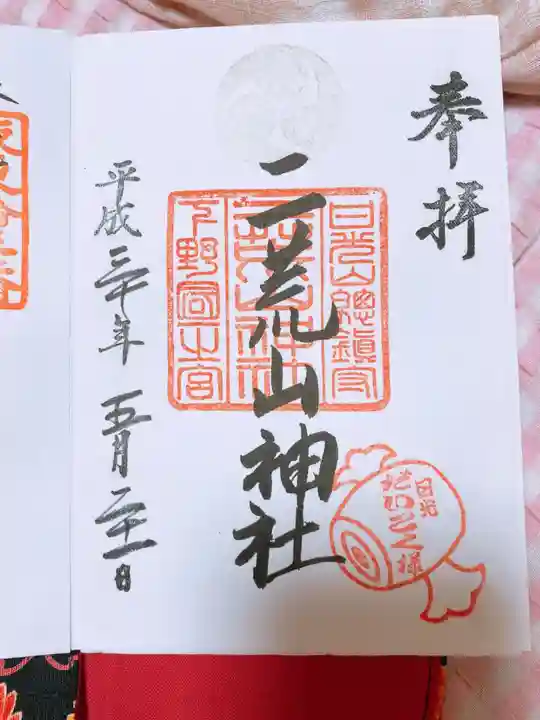 奉拝
日光山總鎮守
二荒山神社
二荒山神社
下野國一之宮
平成三十年五月二十一日
日光
だいこく様